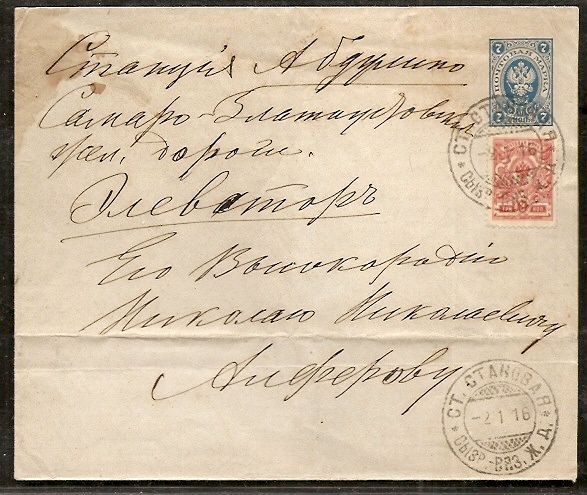 Станція Абдулино
Самаро-Златоустовской
жел. дороги.
Элеваторъ
Его Высокородію
Николаю Николаевичу
Алферову
7 7
ПОЧТОВАЯ МАРКА
7 7
СТ. СТАНОВАЯ
СЫЗР.-ВЯЗ. Ж. Д.
ТРИ КОП
СТ. СТАНОВАЯ
-2 1 16
СЫЗР.-ВЯЗ. Ж. Д.